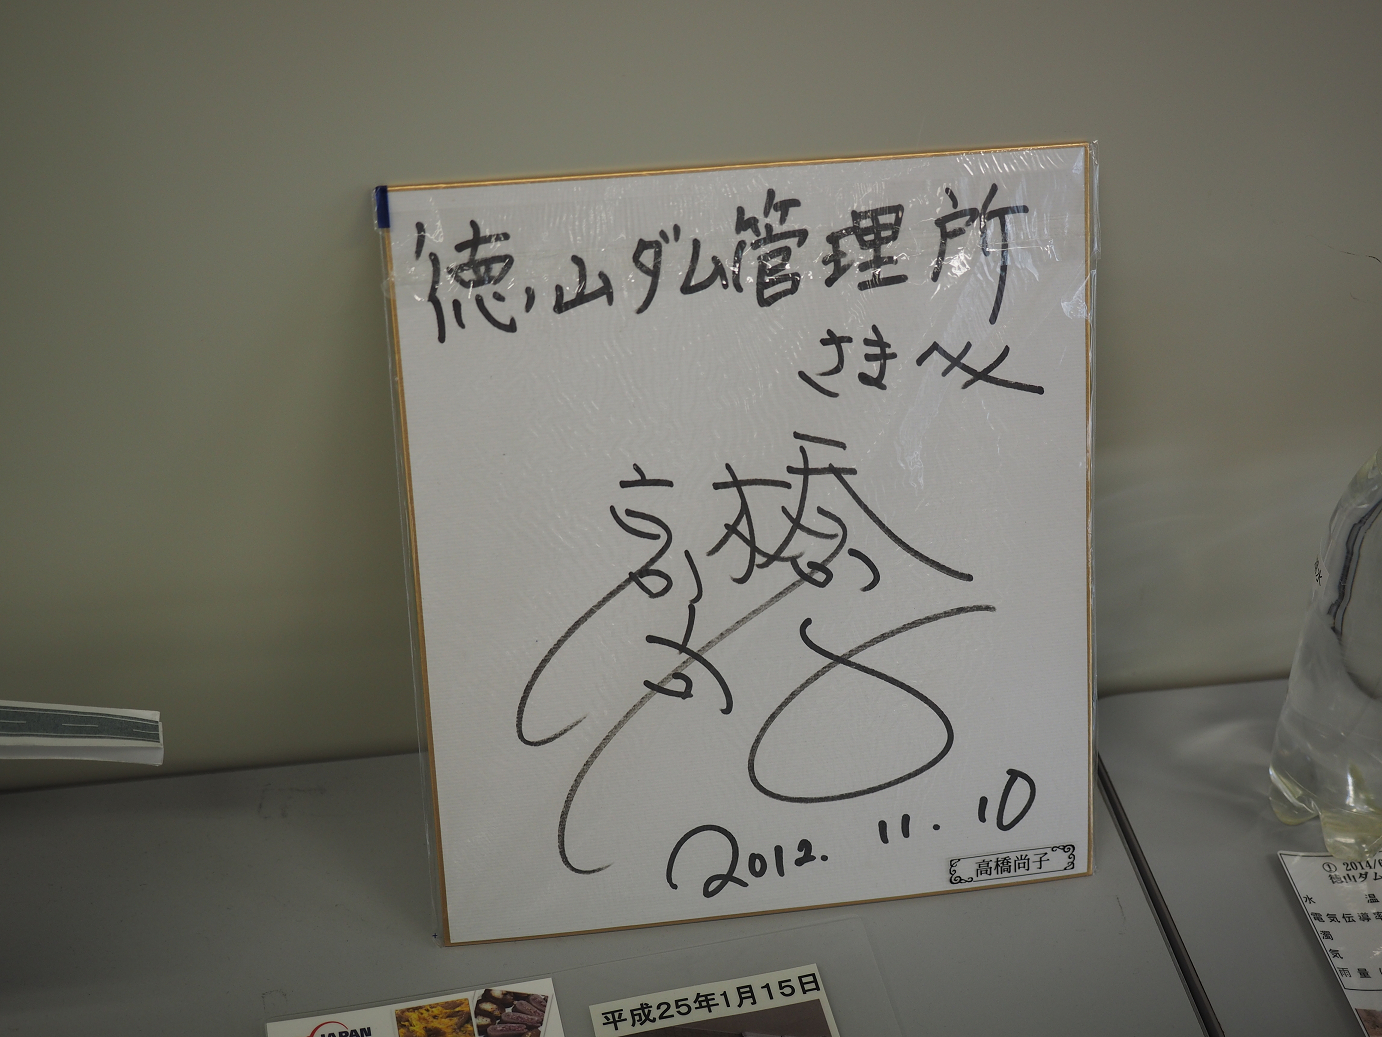 徳山ダム管理所
さま
高橋尚子
2012. 11. 10
高橋尚子
JAPAN
平成25年1月15日
① 2014/
徳山ダム
水 温
電気伝導率
濁
気
雨量